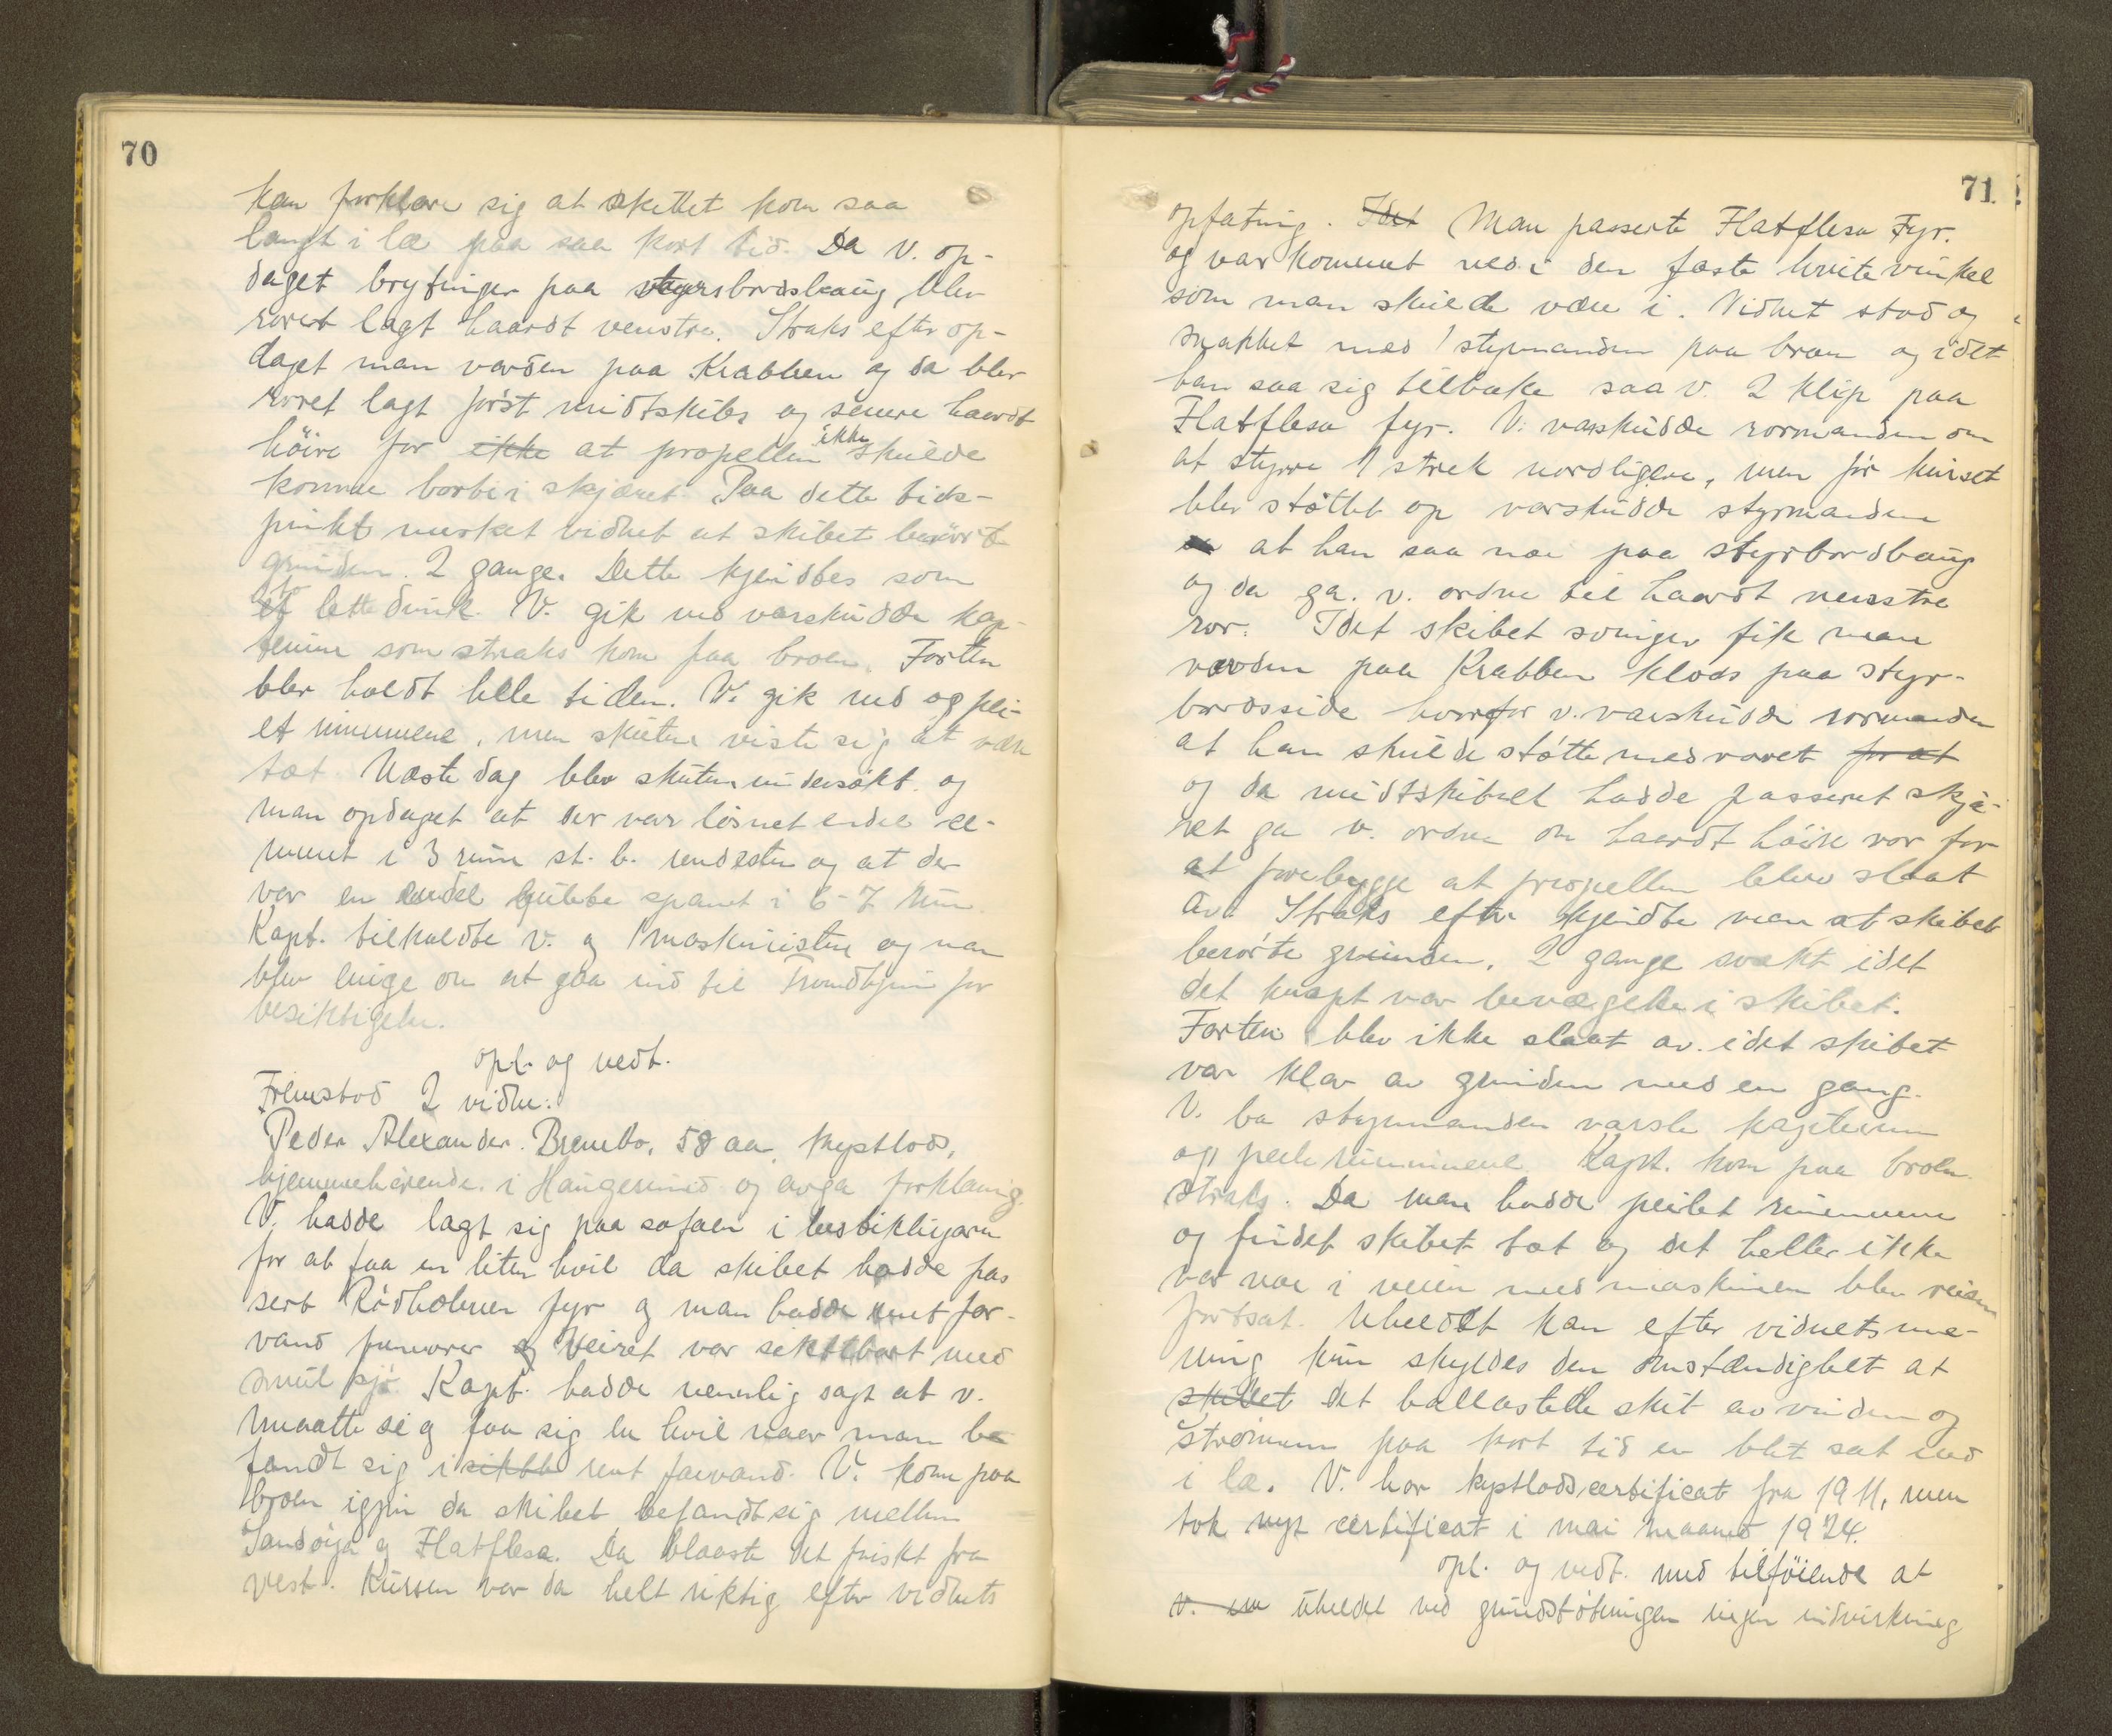 70
kan forklare sig at skettet kom saa
langt i læ paa saa kort tid. Da v. op-
daget brytinger paa styrsbordsbaug blev
roret lagt haardt venstre. Straks efter op-
daget man varden paa Krabben og da blev
roret lagt først midtskibs og senere haardt
høire for ikke at propellen ikke skulde
komme borti skjæret. Paa dette tids-
punkt merket vidnet at skibet berørte
grunden 2 gange. Dette kjendtes som
et lette dunk. V. gik ned varskudde kap-
teinen som straks kom paa broen. Farten
blev holdt hele tiden. V. gik ned og pei-
let rummene, men skuten viste sig at være
tæt. Næste dag blev skuten undersøkt og
man opdaget at der var løsnet endel ce-
ment i 3 rum st. b. rendesten og at der
var en endel spant i 6-7 rum.
Kapt. tilkaldte v. og 1 maskinisten og man
blev enige om at gaa ind til Trondhjem for
besiktigelse.
opl. og vedt.
Fremstod 2 vidne:
Peder Alexander Brembo, 58 aar, kystlods,
hjemmehørende i Haugesund og avga forklaring.
V. hadde lagt sig paa sofaen i bestiklugaren
for at faa en liten hvil da skibet hadde pas
sert Rødholmen fyr og man hadde rent far-
vand forover og Veiret var siktbart med
smul sjø. Kapt. hadde nemlig sagt at v.
maatte se og faa sig en hvil naar man be
fandt sig i sikkt rent farvand. V. kom paa
broen igjen da skibet befandt sig mellem
Sandøya og Flatflesa. Da blaaste det friskt fra
vest. Kursen var da helt riktig efter vidnets
71.
opfatning. Idet Man passerte Flatflesa Fyr.
og var kommet ned i den faste hvite vinkel
som man skulde være i. Vidnet stod og
snakket med 1 styrmanden paa broen og idet
han saa sig tilbake saa v. 2 klip paa
Flatflesa fyr. V. varskudde rormanden om
at styre 1 strek nordligere, men før kurset
blev støttet op varskudde styrmanden
at han saa noe paa styrbordbaug
og da ga. v. ordre til haardt venstre
ror. Idet skibet svinger fik man
varden paa Krabben klods paa styr-
bordsside hvorfor v. varskudde rormanden
at han skulde støtte med roret for at
og da midtskibet hadde passeret skjæ-
ret ga v. ordre om haardt høire ror for
at forebygge at propellen blev slaat
av. Straks efter kjendte man at skibet
berørte grunden, 2 gange svakt idet
det knapt var bevægelse i skibet.
Farten blev ikke slaat av. idet skibet
var klar av grunden med en gang.
V. ba styrmanden varsle kapteinen
og peile rummene. Kapt. kom paa broen
straks. Da man hadde peilet rummene
og fundet skibet tæt og det heller ikke
var noe i veien med maskinen blev reisen
fortsat. Uheldet kan efter vidnets me-
ning kun skyldes den omstændighet at
skibet det ballastede skib av vinden og
strømmen paa kort tid er blit sat ind
i læ. V. har kystlodscertificat fra 1911, men
tok nyt certificat i mai maaned 1924.
opl. og vedt. med tilføiende at
v. uheldet ved grundstøtningen ingen indvirkning